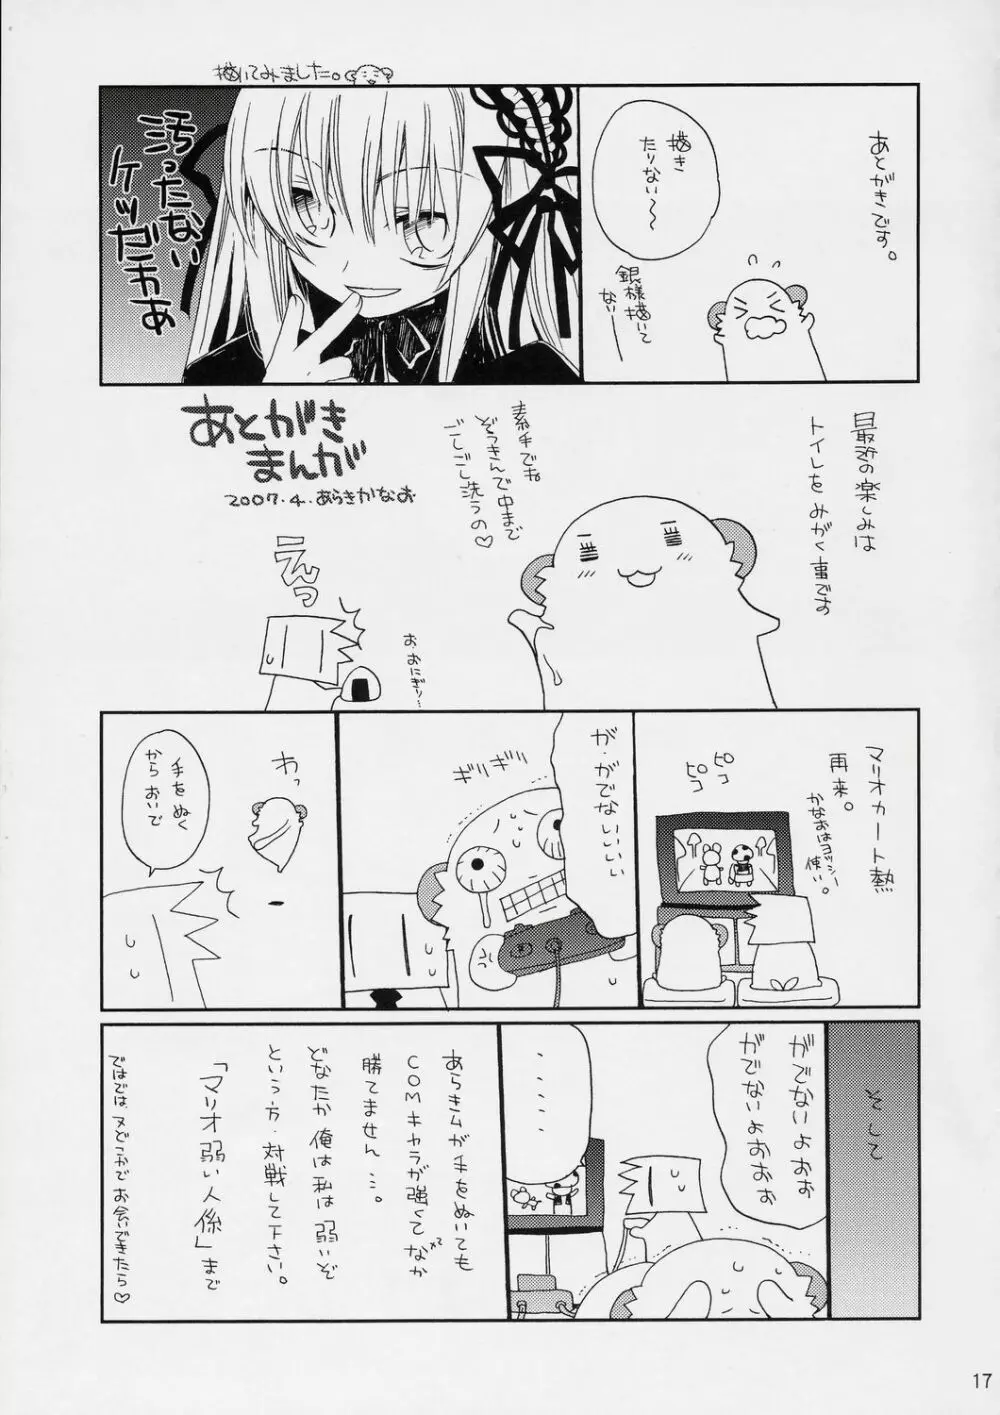 あとがきです。
描き
たりない〜
銀様描いて
ない――
描いてみました。
汚ったない
ケツだわぁ
あとがき
まんが
2007.4.あらきかなお
最近の楽しみは
トイレをみがく事です
素手でね
ぞうきんで中まで
ごしごし洗うの♡
えんっ
お、おにぎり…
マリオカート熱
再来。
かなおはヨッシー
使い。
ピコ
ピコ
が、がでないいいい
ギリギリ
わっ
手をぬく
からおいで
そして
がでないよおぉぉ
がでないよおぉぉ
・・・・・
あらきムが手をぬいても
COMキャラが強くてなかx2
勝てません…。
どなたか俺は私は弱いぞ
という方、対戦して下さい。
「マリオ弱い人係」まで
ではでは、又どこかでお会いできたら♡
17